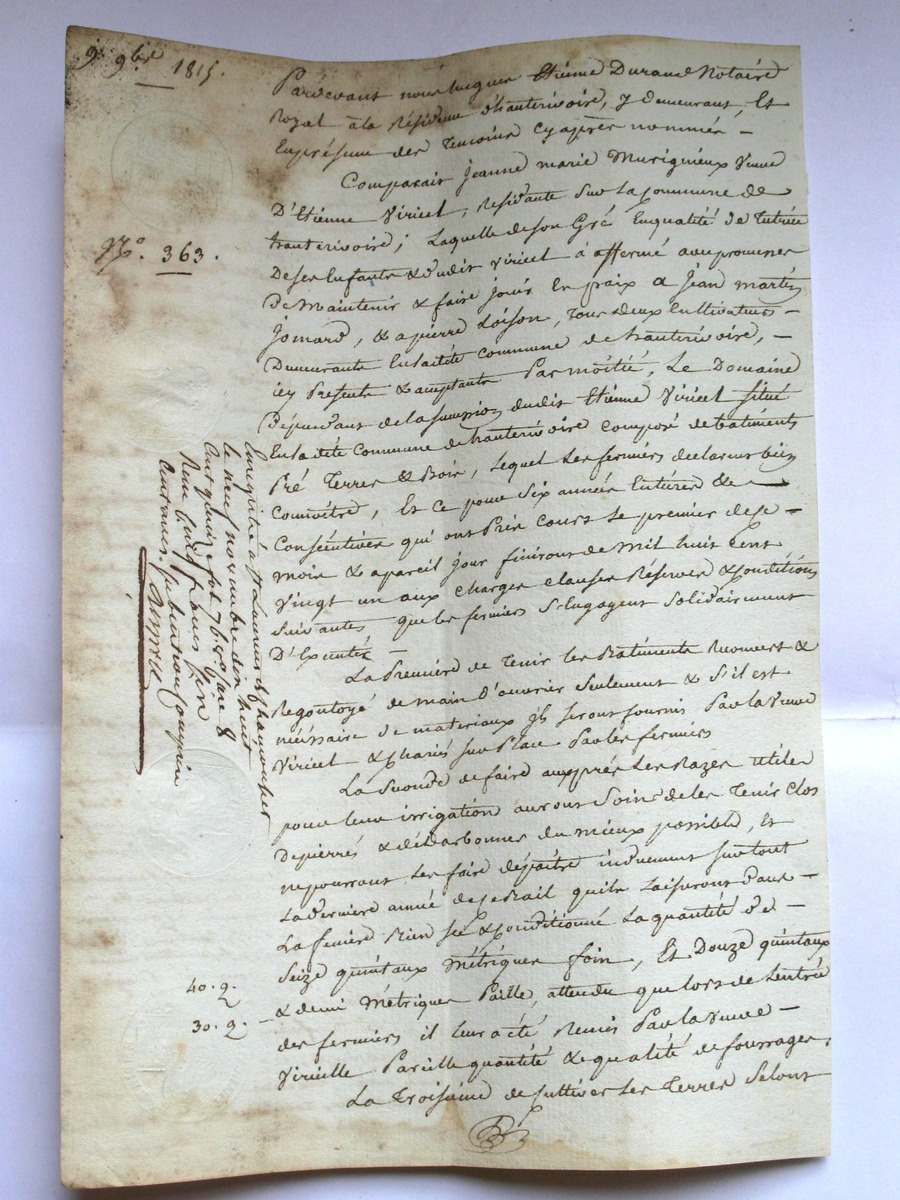 9. 9bre 1815.
Pardevant nous hugues Etienne Durand Notaire
Royal a la Résidence d'hauterivoire, y demeurant, Et
En présence des Temoins cy après nommés —
Comparait jeanne marie Murigneux Veuve
D'Etienne Viricel, Résidante Sur La Commune de
hauterivoire; Laquelle de son Gré En qualité de Tutrice
N.o 363.
De ses Enfants & dudit Viricel à affermé avec promesse
De Maintenir & faire jouir En paix a jean martin
jomard, & a pierre Loison, Tous deux Cultivateurs —
Demeurants En la dite commune de hauterivoire, —
icy Présents & acceptants Par moitié, Le Domaine
Dépendant de la succession dudit Etienne Viricel situé
En la dité Commune de hauterivoire composé de batiments
Pré Terres & Bois, Lequel Les fermiers declarent bien
Connoître, Et Ce pour Six années Entières &
Consécutives qui ont Pris Cours Le premier de ce —
mois & a pareil jour finiront de Mil huit Cent
Vingt un aux Charges clauses Réserves & Conditions
Suivantes que les fermiers S'Engagent Solidairement
D'Exécuter —
Enregistré à St Laurent de Chamousset
le neuf novembre dix huit
cent quinze fol. 76
Reçu
centimes.
La Premiere de Tenir les Batiments Recouverts &
Regoutoyé de main d'ouvrier Seulement & S'il est
nécéssaire de materiaux ils seront fournis Par la Veuve
Viricel & Chariés sur Place Par les fermiers
La Seconde de faire aux prés Les Razes Utiles
pour leur irrigation auront Soin de les Tenir Clos
Depierrés & détarbonnés du mieux possible, Et
ne pourront Les faire dépaitre induement Surtout
La derniere année de ce Bail quils Laisseront dans —
La feniere Bien Sec & Conditionné La quantité de —
40. q.
Seize quintaux Métriques foin, Et Douze quintaux
30. q.
& demi Métriques Paille, attendu que lors de L'entrée
des fermiers il leur a été Remis Par la Veuve —
Viricelle Pareille quantité & qualité de fourrages,
La Troisième de Cultiver Les Terres Selont